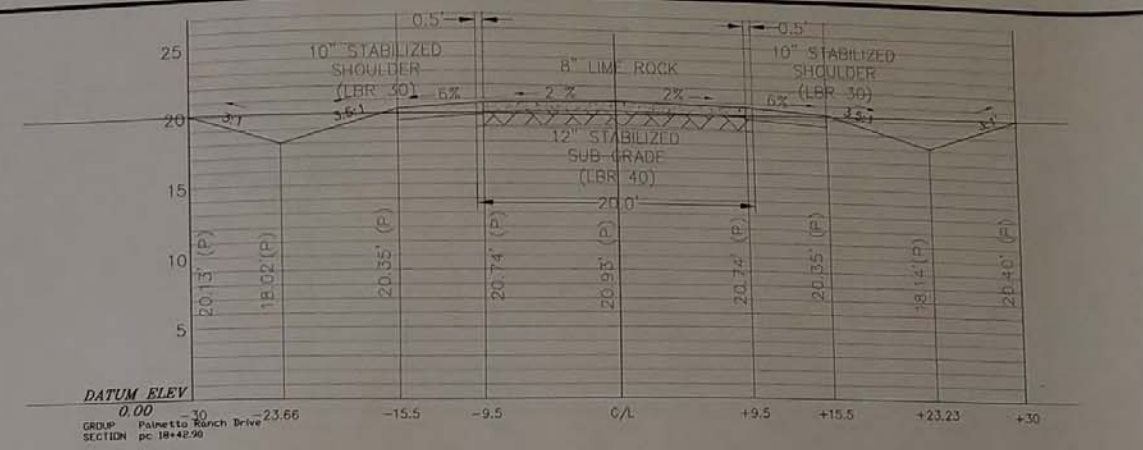 0.5'
0.5'
25
10" STABILIZED
SHOULDER
(LBR 30)
8" LIME ROCK
10" STABILIZED
SHOULDER
(LBR 30)
3:1
3.5:1
6%
2 %
2%
6%
3.5:1
3:1
20
12" STABILIZED
SUB-GRADE
(LBR 40)
15
20.0'
10
20.13' (P)
18.02' (P)
20.35' (P)
20.74' (P)
20.93' (P)
20.74' (P)
20.35' (P)
18.14' (P)
20.40' (P)
5
DATUM ELEV
0.00
-30
-23.66
-15.5
-9.5
C/L
+9.5
+15.5
+23.23
+30
GROUP Palmetto Ranch Drive
SECTION pc 18+42.90